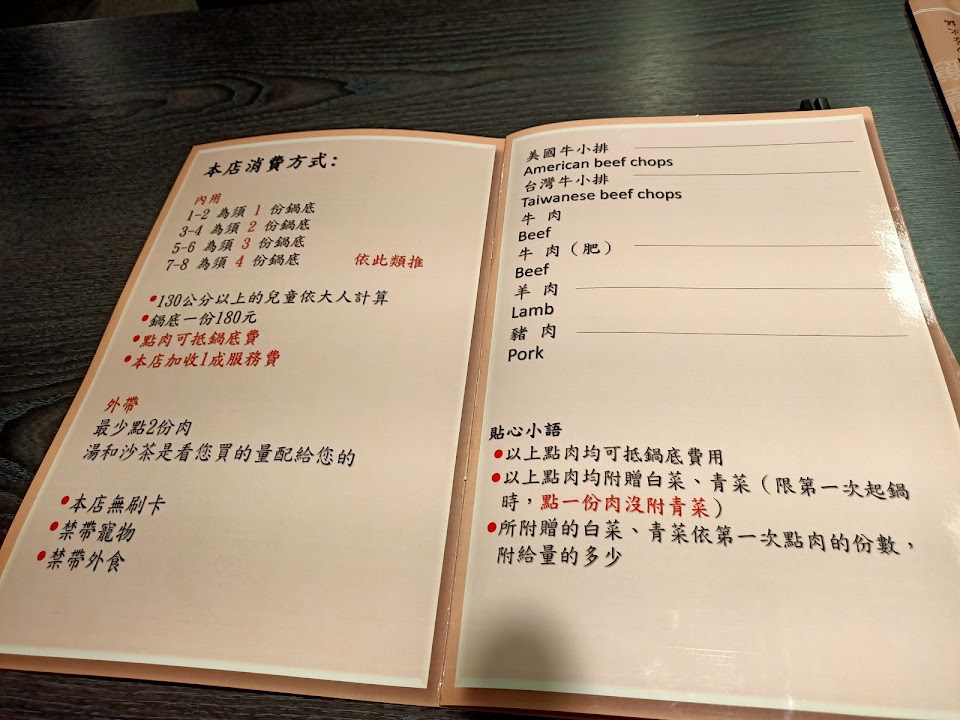 本店消費方式：
內用
1-2 為須 1 份鍋底
3-4 為須 2 份鍋底
5-6 為須 3 份鍋底
7-8 為須 4 份鍋底 依此類推
•130公分以上的兒童依大人計算
•鍋底一份180元
•點肉可抵鍋底費
•本店加收1成服務費
外帶
最少點2份肉
湯和沙茶是看您買的量配給您的
•本店無刷卡
•禁帶寵物
•禁帶外食
美國牛小排
American beef chops
台灣牛小排
Taiwanese beef chops
牛 肉
Beef
牛 肉（肥）
Beef
羊 肉
Lamb
豬 肉
Pork
貼心小語
•以上點肉均可抵鍋底費用
•以上點肉均附贈白菜、青菜（限第一次起鍋
時，點一份肉沒附青菜）
•所附贈的白菜、青菜依第一次點肉的份數，
附給量的多少